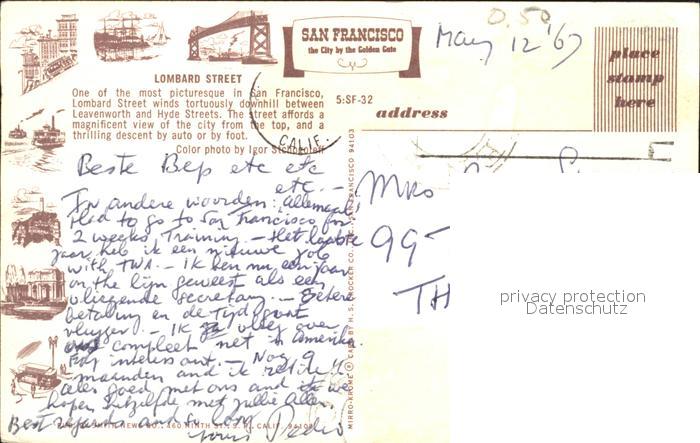 SAN FRANCISCO
the City by the Golden Gate
0.50
May 12 '67
place
stamp
here
LOMBARD STREET
One of the most picturesque in San Francisco,
Lombard Street winds tortuously downhill between
Leavenworth and Hyde Streets. The street affords a
magnificent view of the city from the top, and a
thrilling descent by auto or by foot.
Color photo by Igor
5:SF-32
address
CALIF.
Beste Bep etc etc
etc. -
In andere woorden: allemaal
Had to go to San Francisco for
2 weeks Training. - Het laatste
jaar heb ik een nieuwe job
with TWA. - Ik ben nu een jaar
on the lijn geweest als een
vliegende secretary. - Betere
betaling en de Tijd gaat
vlugger. - Ik vlieg over
compleet net in Amerika.
Far interessant. - Nog 9
maanden and ik retire!!
Alles goed met ons and we
hopen hetzelfde met jullie allen.
Best regards and so long
yours Pedro
Mrs
99-
TH
privacy protection
Datenschutz
460 NINTH ST., S. F., CALIF. 94103
MIRRO-KROME ® CARD BY H. S. CROCKER CO., SAN FRANCISCO 94103